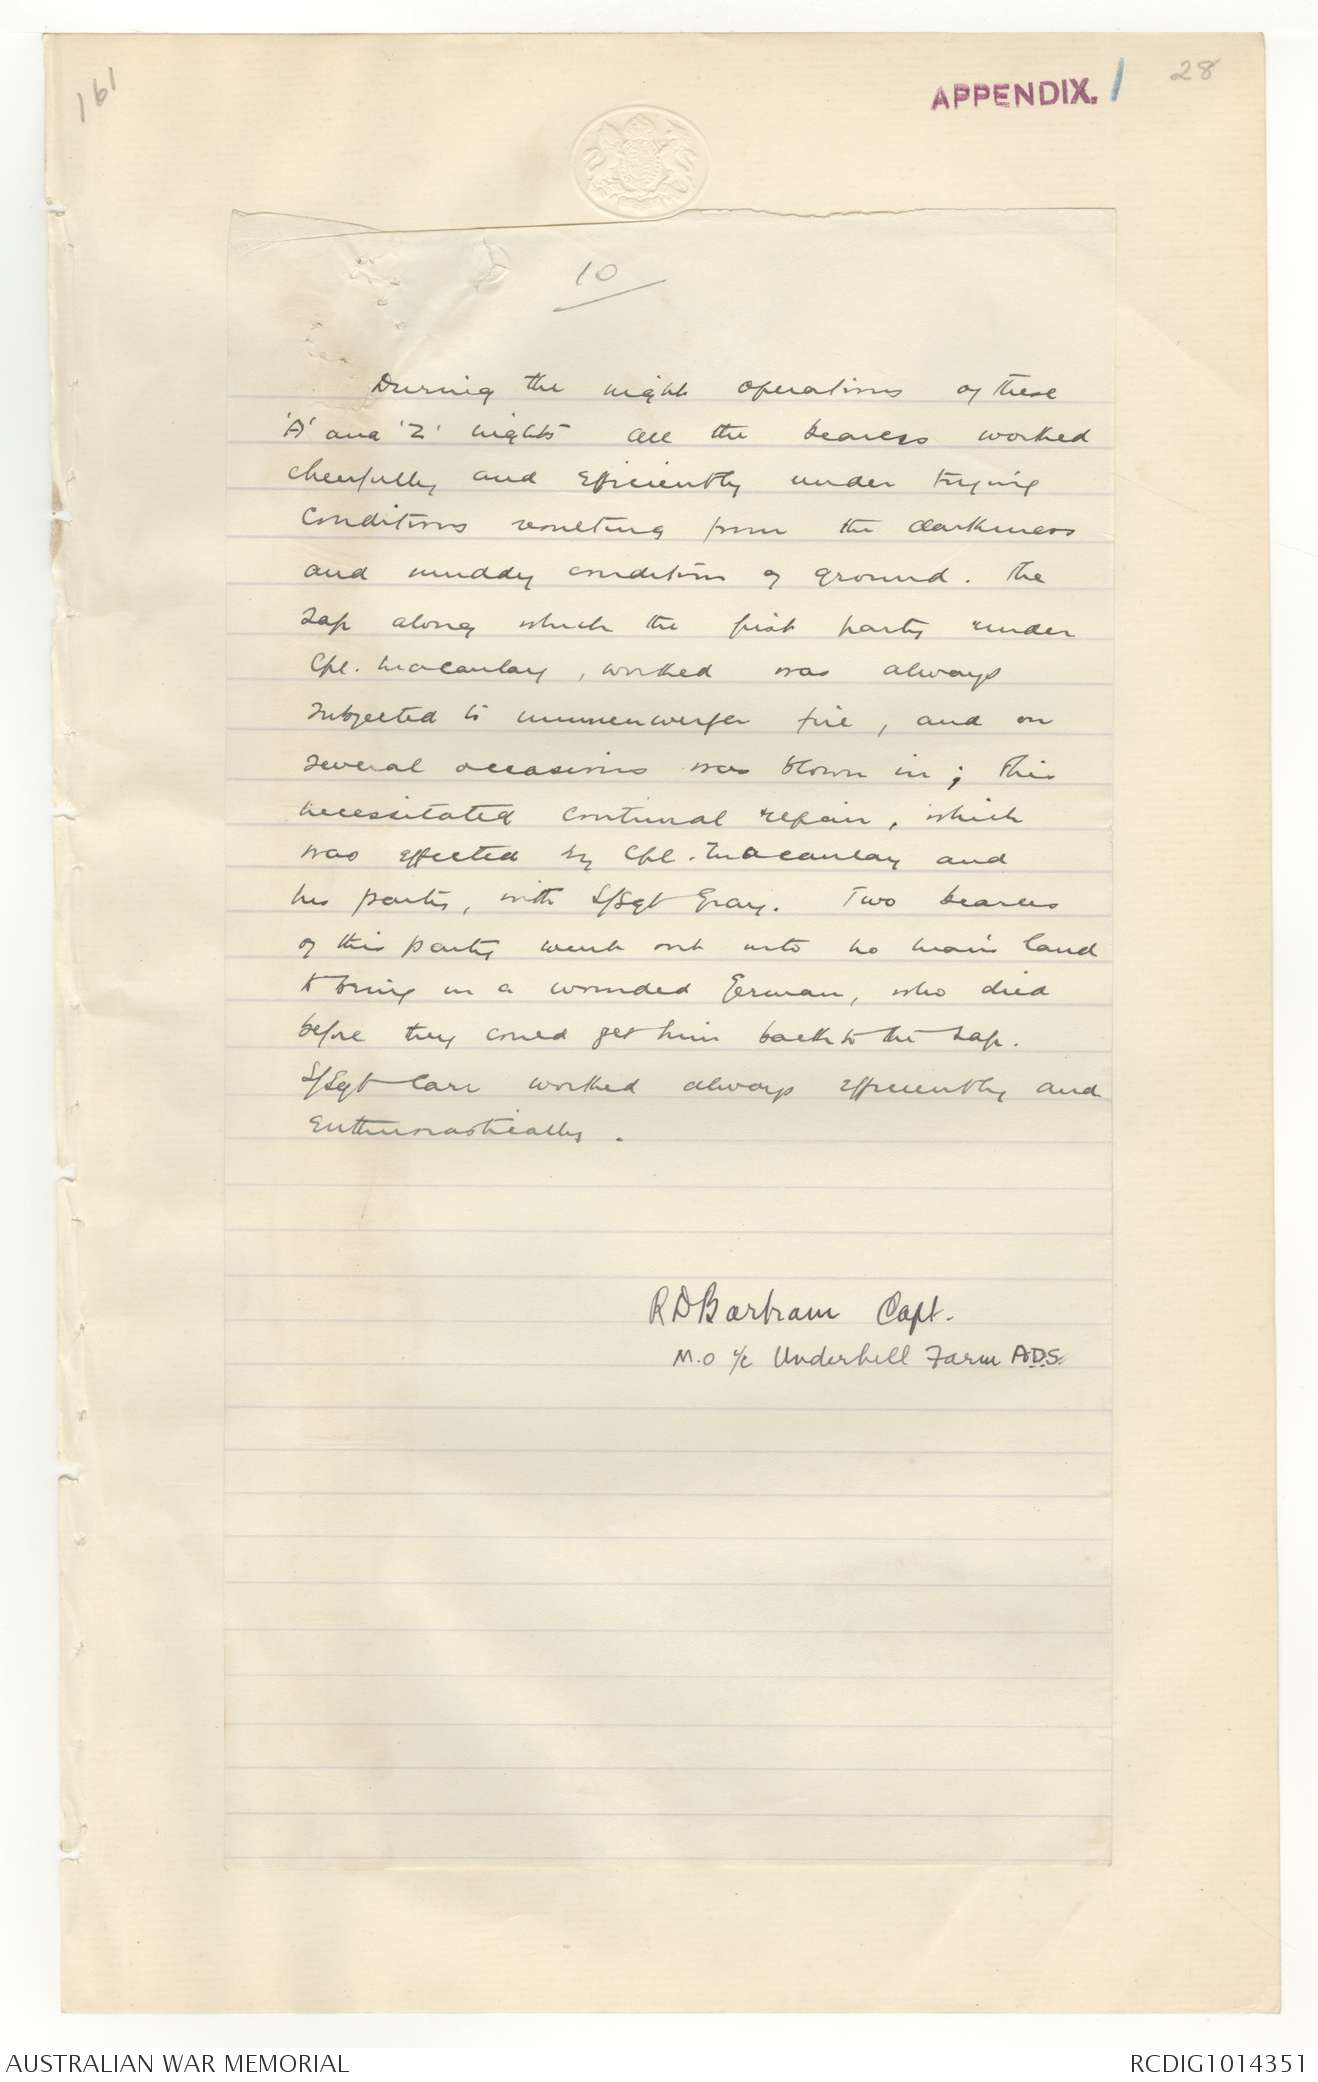 161
APPENDIX. 1
28
10
During the night operations of these
'A' and 'Z' nights all the bearers worked
cheerfully and efficiently under trying
conditions resulting from the darkness
and muddy condition of ground. The
sap along which the first party under
Cpl. Macaulay, worked was always
subjected to minnenwerfer fire, and on
several occasions was blown in; this
necessitated continual repair, which
was effected by Cpl. Macaulay and
his party, with S/Sgt Gray. Two bearers
of this party went out into no man's land
to bring in a wounded German, who died
before they could get him back to the sap.
S/Sgt Carr worked always efficiently and
enthusiastically.
R D Bartram Capt.
M.O i/c Underhill Farm A.D.S.
AUSTRALIAN WAR MEMORIAL
RCDIG1014351